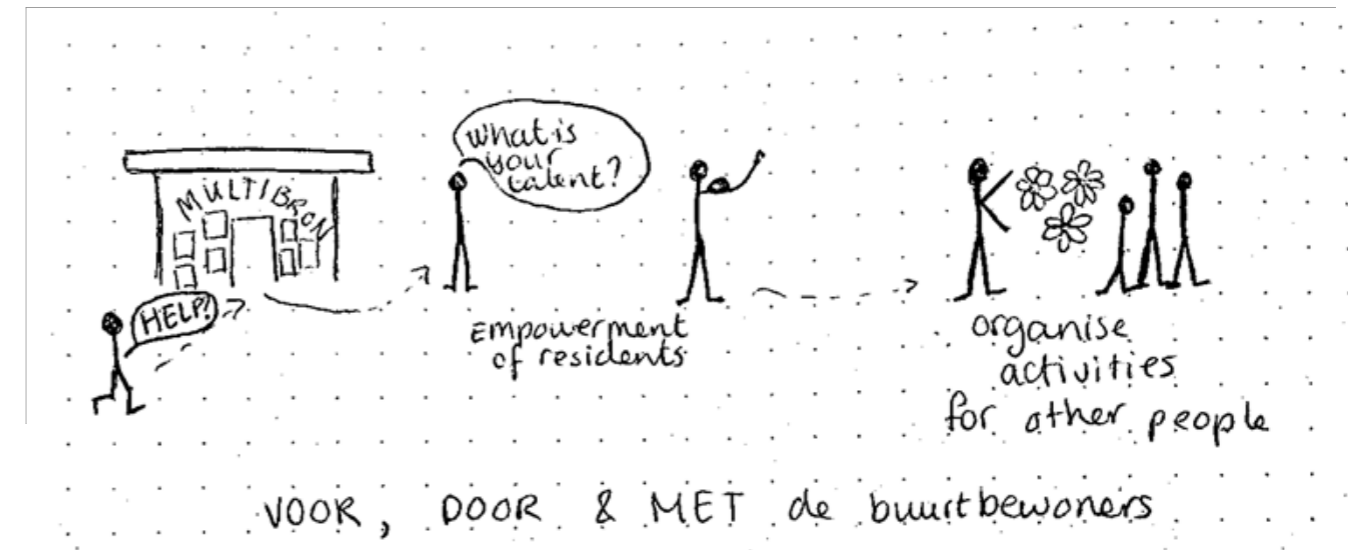 MULTIBRON
HELP!
What is
your
talent?
Empowerment
of residents
organise
activities
for other people
VOOR, DOOR & MET de buurtbewoners